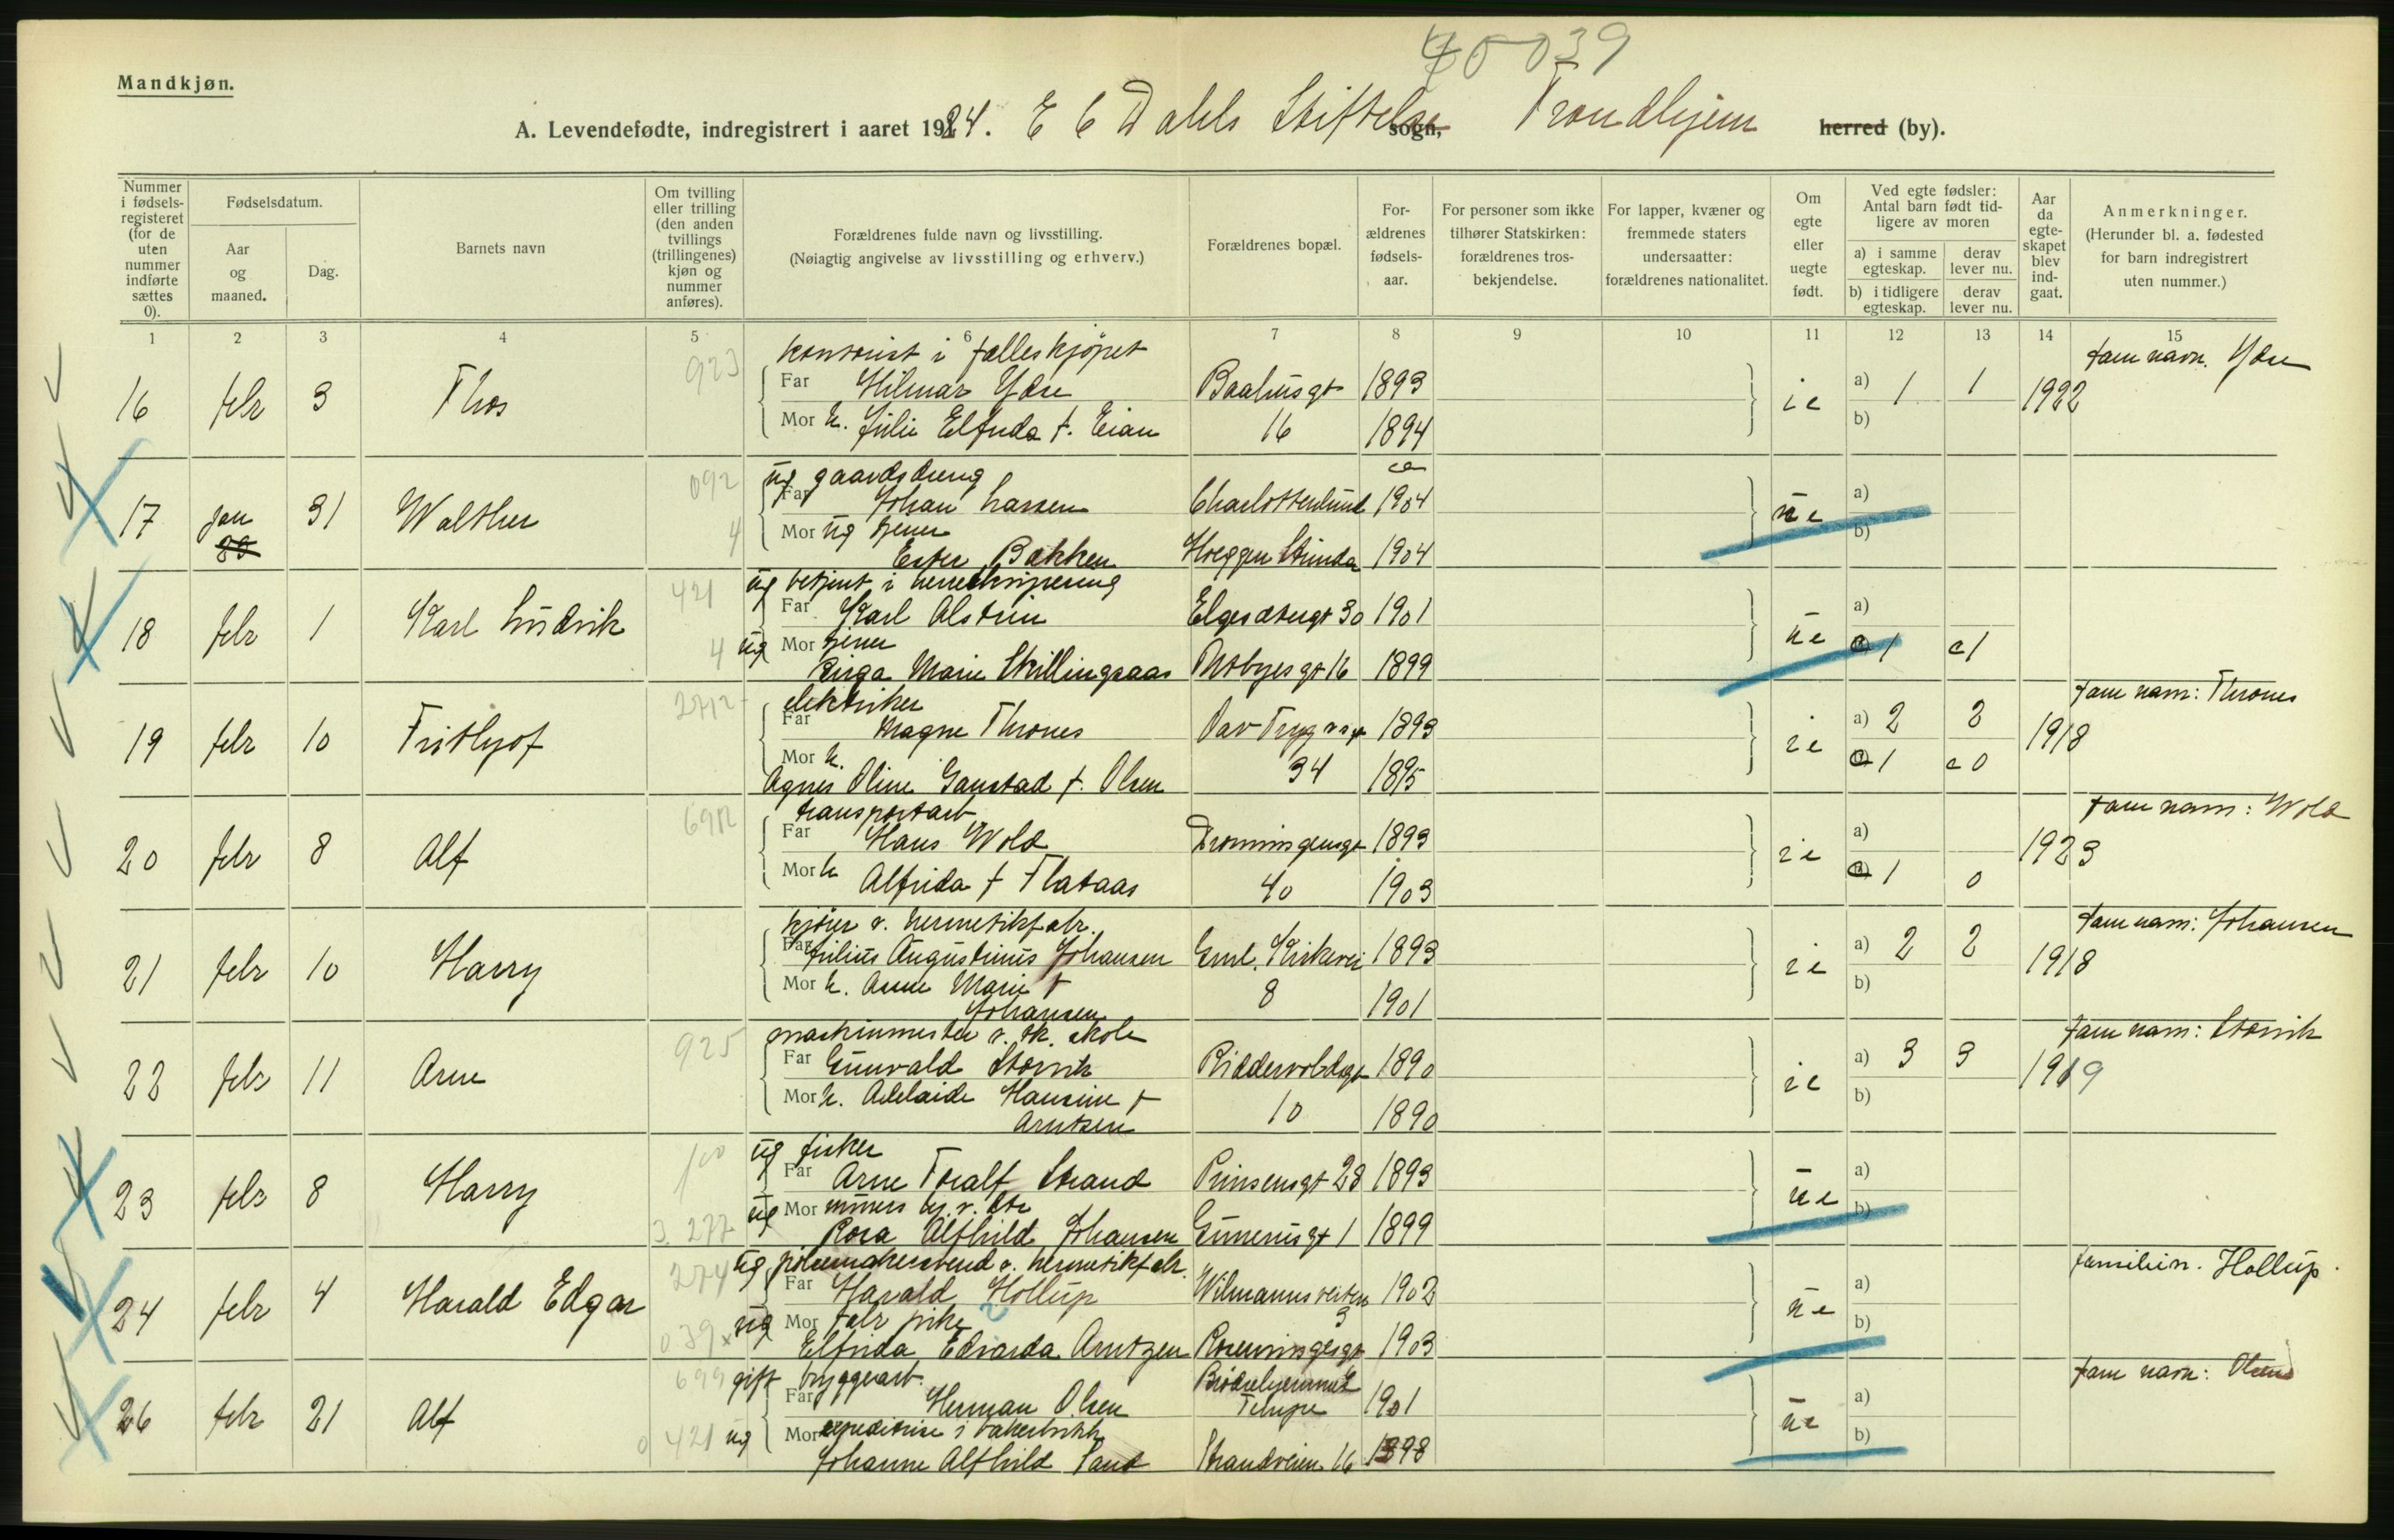 70039
Mandkjøn.
A. Levendefødte, indregistrert i aaret 1924. E C Dahls Stiftelse sogn, Trondhjem herred (by).
Nummer i fødsels-registeret (for de uten nummer indførte sættes 0).
Fødselsdatum.
Aar og maaned.
Dag.
Barnets navn
Om tvilling eller trilling (den anden tvillings (trillingenes) kjøn og nummer anføres).
Forældrenes fulde navn og livsstilling.
(Nøiagtig angivelse av livsstilling og erhverv.)
Forældrenes bopæl.
For-ældrenes fødsels-aar.
For personer som ikke tilhører Statskirken: forældrenes tros-bekjendelse.
For lapper, kvæner og fremmede staters undersaatter: forældrenes nationalitet.
Om egte eller uegte født.
Ved egte fødsler: Antal barn født tid-ligere av moren
a) i samme egteskap.
derav lever nu.
b) i tidligere egteskap.
derav lever nu.
Aar da egte-skapet blev ind-gaat.
Anmerkninger.
(Herunder bl. a. fødested for barn indregistrert uten nummer.)
1 2 3 4 5 6 7 8 9 10 11 12 13 14 15
923 kontorist i Felleskjøpet fam navn. Ydse
16 febr 3 Thos Far Hilmar Ydse Baahusgt 1893 ie a) 1 1 1922
Mor h. Julie Elfrida f. Eian 16 1894 b)
092 ug gaardsdreng ca
17 jan 31 Walther Far Johan Larsen Charlottenlund 1904 ue a)
4 Mor ug tjener
Ester Bakken Hoeggen Strinda 1904 b)
421 ug betjent i herreekvipering
18 febr 1 Karl Ludvik Far Karl Alstrin Elgesetergt 30 1901 ue a)
4 ug Mor tjener c) 1 c 1
Birga Marie Skillingsaas 16 1899
2712 elektriker fam navn: Thrones
19 febr 10 Frithjof Far Magne Thrones Olav Trygvsgt 1893 ie a) 2 2 1918
Mor h. c) 1 c 0
Agnes Oline Ganstad f. Olsen 34 1895
698 transportarb fam navn: Wold
20 febr 8 Alf Far Hans Wold Dronningensgt 1893 ie a) 1923
Mor h Alfrida f Flataas 40 1903 c) 1 0
kjører v. hermetikfabr. fam navn: Johansen
21 febr 10 Harry Far Julius Augustinus Johansen Gml. Kirkevei 1893 ie a) 2 2 1918
Mor h. Anne Marie f Johansen 8 1901 b)
925 maskinmester v. tk. skole fam navn: Storvik
22 febr 11 Arne Far Gunvald Storvik Riddervoldsgt 1890 ie a) 3 3 1919
Mor h. Adelaide Hansine f Arntsen 10 1890 b)
100 ug fisker
23 febr 8 Harry Far Arne Toralf Strand Prinsensgt 28 1893 ue a)
3. 277 ug Mor
Rosa Alfhild Johansen Gunerusgt 1 1899 b)
274 ug v. hermetikfabr. familien. Hollup.
24 febr 4 Harald Edgar Far Harald Hollup Wilmannsveiten 3 1902 ue a)
039 x ug Mor fabr pike
Elfrida Edvarda Arntzen Rosenborgsgt 1903 b)
699 gift bryggearb. fam navn: Olsen
26 febr 21 Alf Far Herman Olsen Tempe 1901 ue a)
0 421 ug Mor expeditrise i bakerbutikk
Johanne Alfhild Sand Strandveien 16 1898 b)